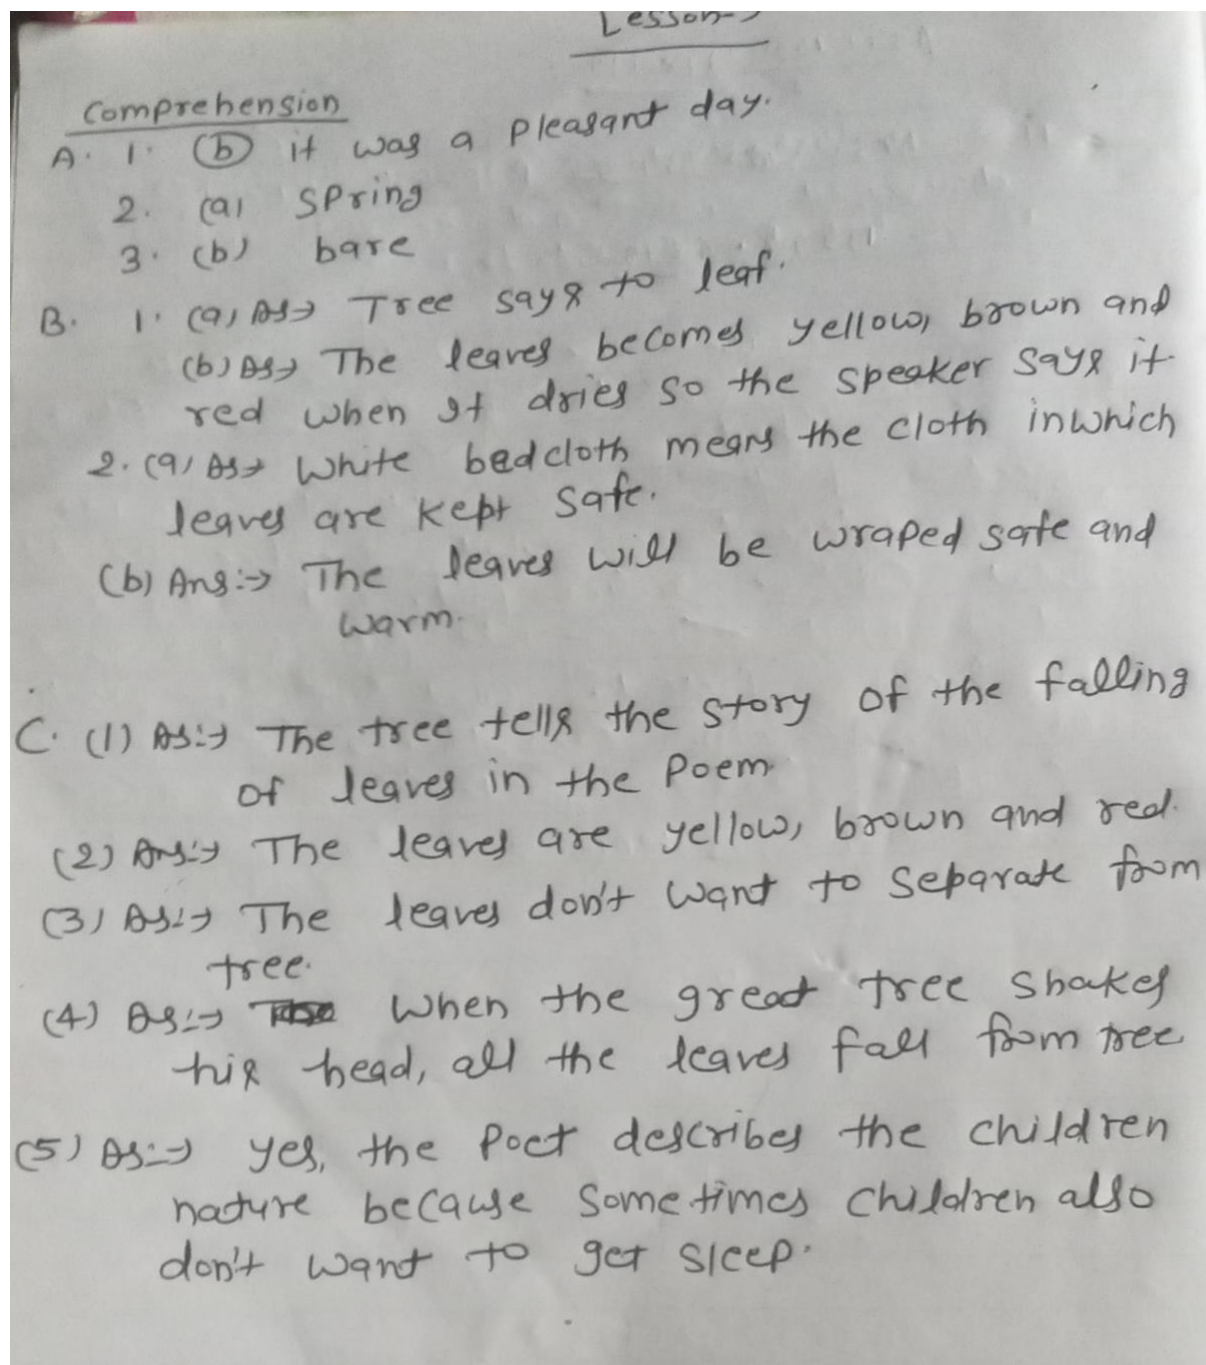 Lesson-
Comprehension
A. 1. (b) it was a pleasant day.
2. (a) Spring
3. (b) bare
B. 1. (a) As→ Tree says to leaf.
(b) As→ The leaves becomes yellow, brown and
red when It dries so the speaker says it.
2. (a) As→ White bedcloth means the cloth inwhich
leaves are kept safe.
(b) Ans:→ The leaves will be wraped safe and
warm.
C. (1) As:→ The tree tells the story of the falling
of leaves in the Poem
(2) Ans:→ The leaves are yellow, brown and red.
(3) As:→ The leaves don't want to separate from
tree.
(4) As:→ When the great tree shakes
his head, all the leaves fall from tree
(5) As:→ yes, the Poet describes the children
nature because Sometimes children also
don't want to get sleep.